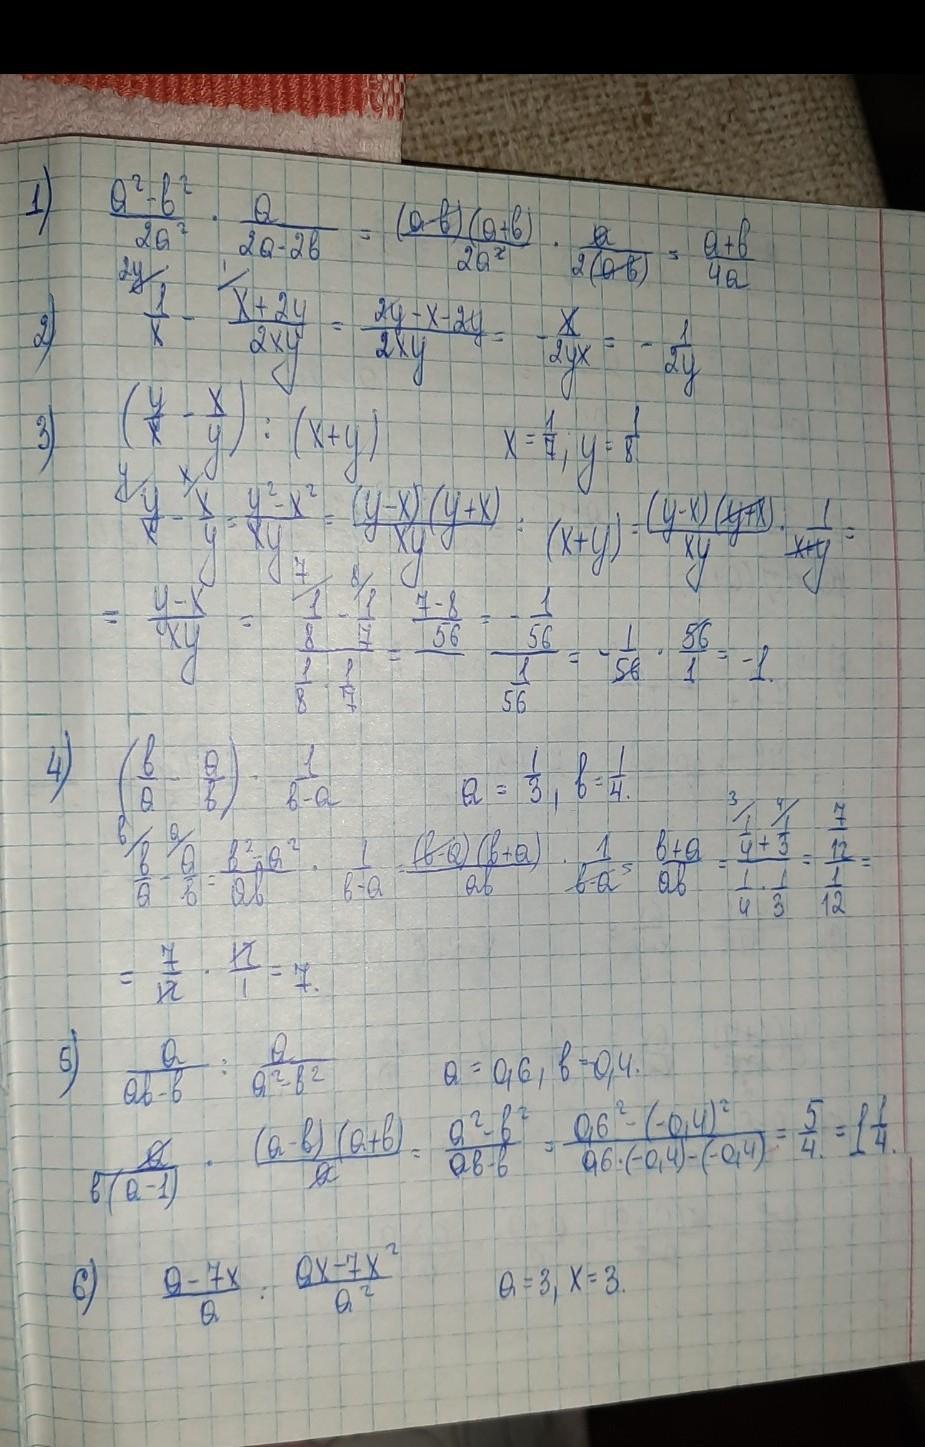 1) (a²-b²)/(2a²) · a/(2a-2b) = ((a-b)(a+b))/(2a²) · a/(2(a-b)) = (a+b)/(4a)
2) 1/x - (x+2y)/(2xy) = (2y-x-2y)/(2xy) = -x/(2yx) = -1/(2y)
3) (y/x - x/y) : (x+y) x=1/7; y=1/8
y/x - x/y = (y²-x²)/(xy) = ((y-x)(y+x))/(xy) : (x+y) = ((y-x)(y+x))/(xy) · 1/(x+y) =
= (y-x)/(xy) = (1/8 - 1/7)/(1/8 · 1/7) = (7-8)/56 = (-1/56)/(1/56) = -1/56 · 56/1 = -1.
4) (b/a - a/b) · 1/(b-a) a = 1/3, b = 1/4.
b/a - a/b = (b²-a²)/(ab) · 1/(b-a) = ((b-a)(b+a))/(ab) · 1/(b-a) = (b+a)/(ab) = (1/4 + 1/3)/(1/4 · 1/3) = (7/12)/(1/12) =
= 7/12 · 12/1 = 7.
5) a/(ab-b) : a/(a²-b²) a=0,6, b=-0,4.
a/(b(a-1)) · ((a-b)(a+b))/a = (a²-b²)/(ab-b) = (0,6²-(-0,4)²)/(0,6·(-0,4)-(-0,4)) = 5/4 = 1 1/4.
6) (a-7x)/a : (ax-7x²)/a² a=3, x=3.